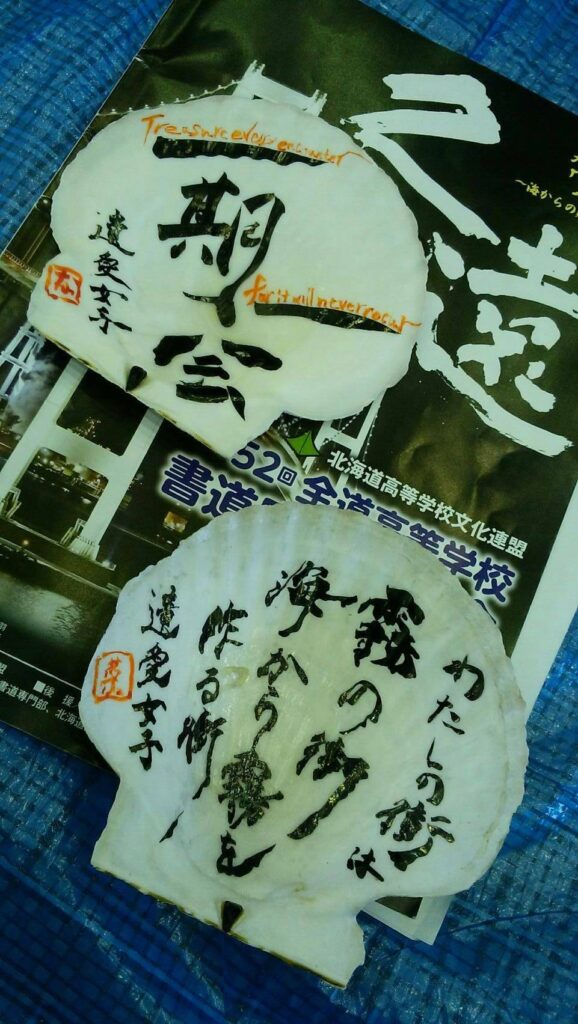 Treasure every encounter
一期一会
for it will never recur
遺愛女子
久遠
～海からの
北海道高等学校文化連盟
52回 全道高等学校
書道
わたしの街は
霧の街
海から霧を
る街
遺愛女子
■後援
書道専門部、北海道